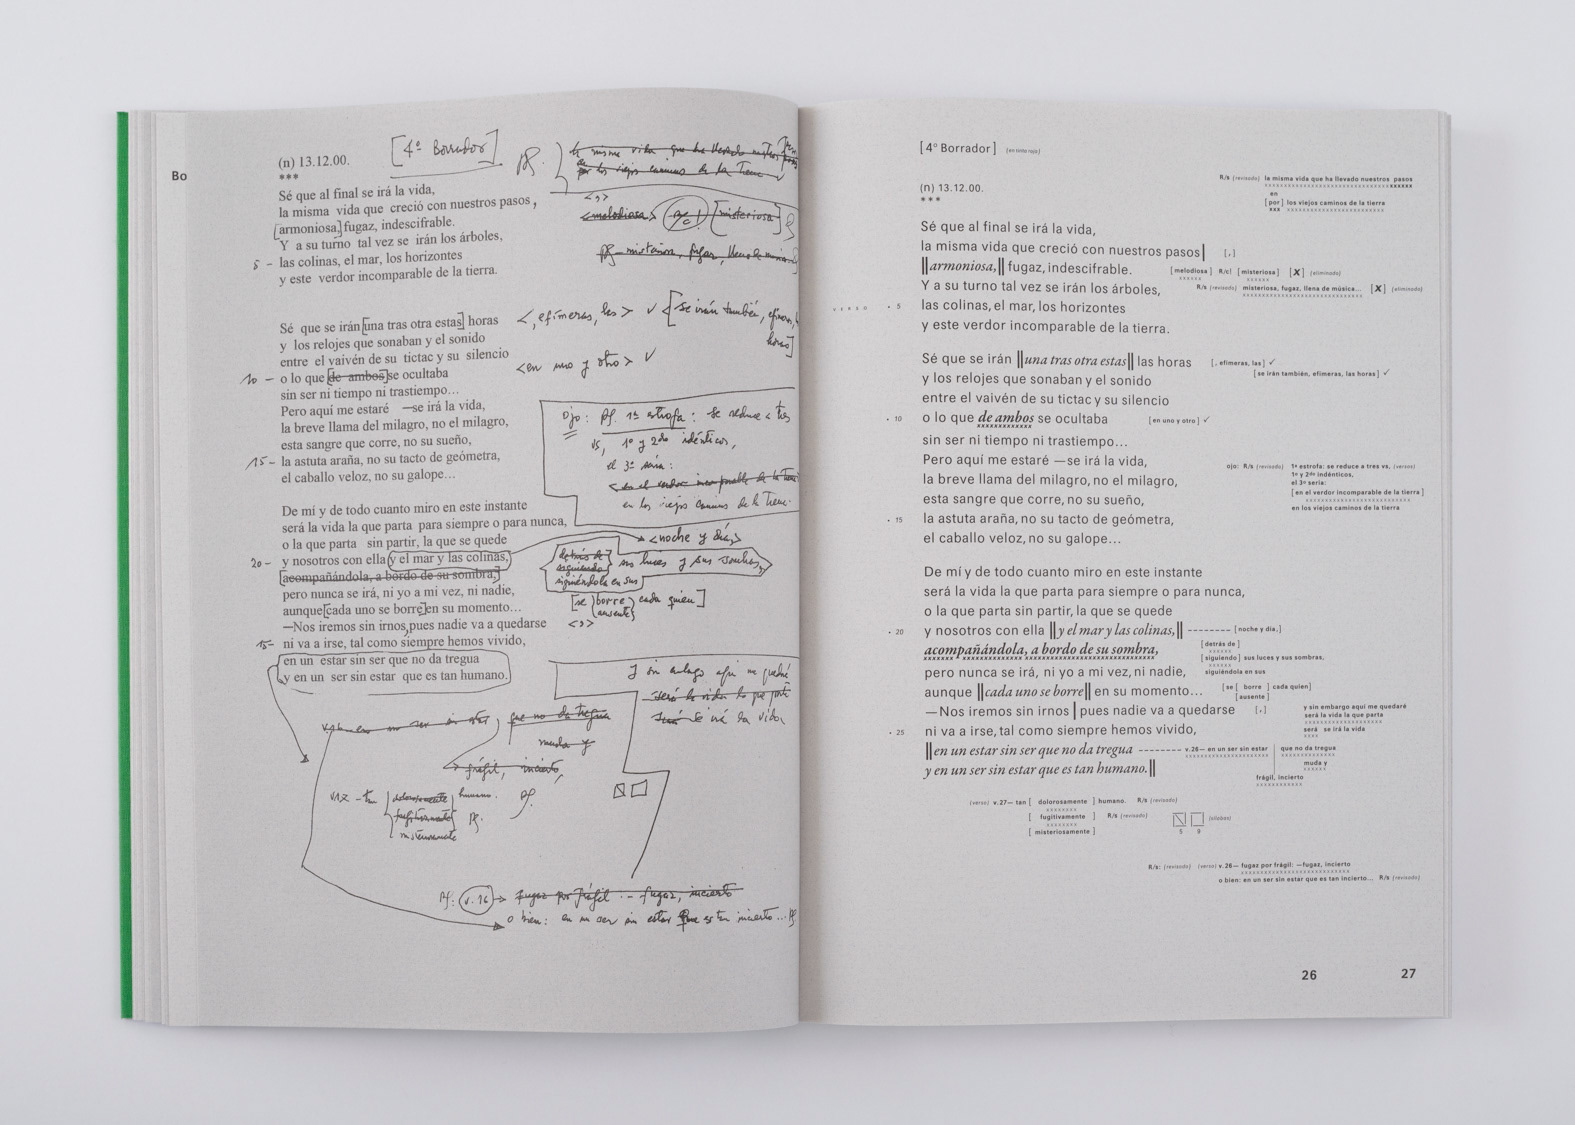 Bo
(n) 13.12.00.
[4º Borrador]
***
Sé que al final se irá la vida,
la misma vida que creció con nuestros pasos,
[armoniosa,] fugaz, indescifrable.
Y a su turno tal vez se irán los árboles,
5 – las colinas, el mar, los horizontes
y este verdor incomparable de la tierra.
Sé que se irán [una tras otra estas] horas
y los relojes que sonaban y el sonido
entre el vaivén de su tictac y su silencio
10 – o lo que [de ambos] se ocultaba
sin ser ni tiempo ni trastiempo...
Pero aquí me estaré —se irá la vida,
la breve llama del milagro, no el milagro,
esta sangre que corre, no su sueño,
15 – la astuta araña, no su tacto de geómetra,
el caballo veloz, no su galope...
De mí y de todo cuanto miro en este instante
será la vida la que parta para siempre o para nunca,
o la que parta sin partir, la que se quede
20 – y nosotros con ella y el mar y las colinas,
[acompañándola, a bordo de su sombra,]
pero nunca se irá, ni yo a mi vez, ni nadie,
aunque [cada uno se borre] en su momento...
—Nos iremos sin irnos, pues nadie va a quedarse
ni va a irse, tal como siempre hemos vivido,
en un estar sin ser que no da tregua
y en un ser sin estar que es tan humano.
la misma vida que ha llevado nuestros pasos
por los viejos caminos de la tierra
<,>
<melodiosa> [misteriosa]
<, efímeras, las> ✓ [se irán también, efímeras, horas]
<en uno y otro> ✓
Ojo: 1ª estrofa: se reduce a tres
vs, 1º y 2do idénticos,
el 3º sería:
en los viejos caminos de la tierra.
<noche y día,>
detrás de
siguiendo sus luces y sus sombras,
siguiéndola en sus
[se borre cada quien]
ausente
<,>
y sin embargo aquí me quedaré
será la vida la que parta
será se irá la vida
que no da tregua
muda y
frágil, incierto,
tan dolorosamente humano.
fugitivamente
misteriosamente
v. 26 → fugaz por frágil – fugaz, incierto
o bien: en un ser sin estar que es tan incierto...
[4º Borrador] (en tinta roja)
(n) 13.12.00.
***
R/s (revisado) la misma vida que ha llevado nuestros pasos
en
[por] los viejos caminos de la tierra
Sé que al final se irá la vida,
la misma vida que creció con nuestros pasos| [,]
||armoniosa,|| fugaz, indescifrable. [melodiosa] R/c! [misteriosa] [X] (eliminado)
Y a su turno tal vez se irán los árboles, R/s (revisado) misteriosa, fugaz, llena de música... [X] (eliminado)
VERSO • 5 las colinas, el mar, los horizontes
y este verdor incomparable de la tierra.
Sé que se irán ||una tras otra estas|| las horas [, efímeras, las] ✓
y los relojes que sonaban y el sonido [se irán también, efímeras, las horas] ✓
entre el vaivén de su tictac y su silencio
• 10 o lo que de ambos se ocultaba [en uno y otro] ✓
sin ser ni tiempo ni trastiempo...
Pero aquí me estaré —se irá la vida, ojo: R/s (revisado) 1ª estrofa: se reduce a tres vs, (versos)
1º y 2do indénticos,
la breve llama del milagro, no el milagro, el 3º sería:
esta sangre que corre, no su sueño, [en el verdor incomparable de la tierra]
en los viejos caminos de la tierra
• 15 la astuta araña, no su tacto de geómetra,
el caballo veloz, no su galope...
De mí y de todo cuanto miro en este instante
será la vida la que parta para siempre o para nunca,
o la que parta sin partir, la que se quede
• 20 y nosotros con ella ||y el mar y las colinas,|| -------- [noche y día,]
acompañándola, a bordo de su sombra, [detrás de]
[siguiendo] sus luces y sus sombras,
pero nunca se irá, ni yo a mi vez, ni nadie, siguiéndola en sus
aunque ||cada uno se borre|| en su momento... [se [borre] cada quien]
[ausente]
—Nos iremos sin irnos | pues nadie va a quedarse [,] y sin embargo aquí me quedaré
será la vida la que parta
• 25 ni va a irse, tal como siempre hemos vivido, será se irá la vida
||en un estar sin ser que no da tregua -------- v.26— en un ser sin estar | que no da tregua
y en un ser sin estar que es tan humano.|| muda y
frágil, incierto
(verso) v.27— tan [dolorosamente] humano. R/s (revisado)
[fugitivamente] R/s (revisado) (sílabas)
[misteriosamente] 5 9
R/s: (revisado) (verso) v.26— fugaz por frágil: —fugaz, incierto
o bien: en un ser sin estar que es tan incierto... R/s (revisado)
26 27